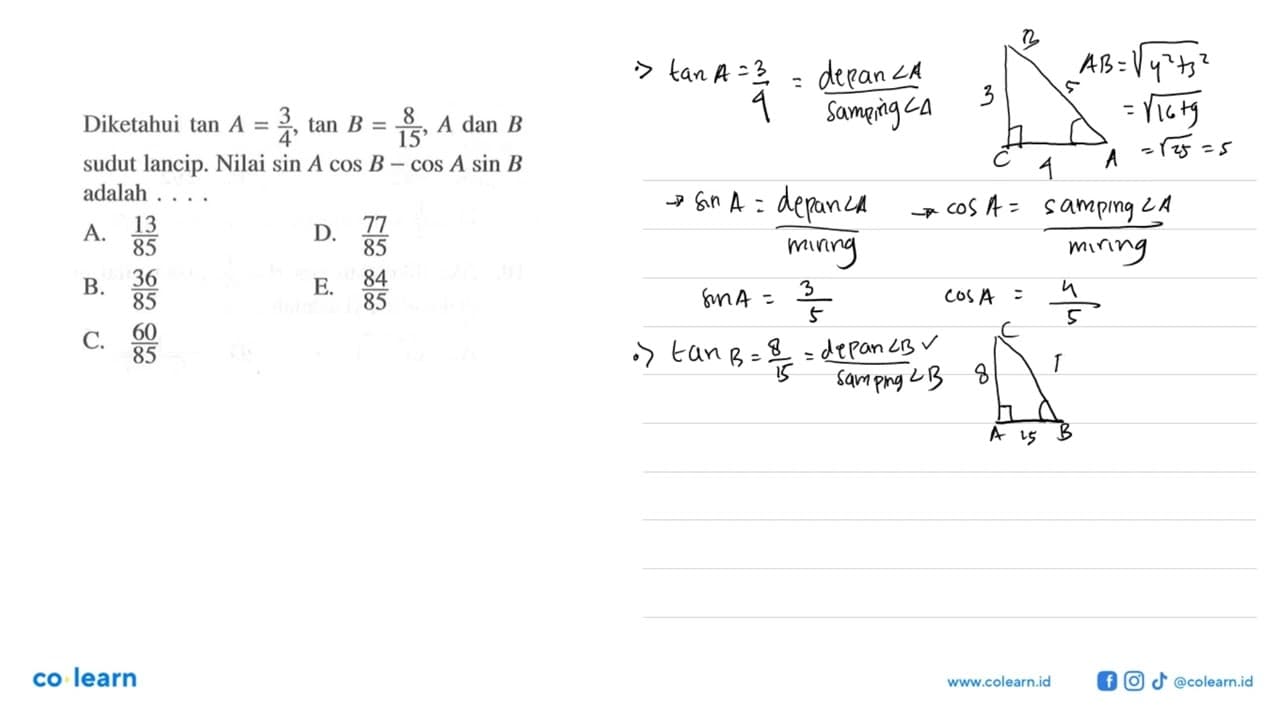 Diketahui tan A = 3/4, tan B = 8/15, A dan B
sudut lancip. Nilai sin A cos B – cos A sin B
adalah . . . .
A. 13/85
B. 36/85
C. 60/85
D. 77/85
E. 84/85
tan A = 3/4 = depan ∠A / samping ∠A
B
3
5
C
4
A
AB = √4²+3²
= √16+9
= √25 = 5
→ sin A = depan ∠A / miring
→ cos A = samping ∠A / miring
sin A = 3/5
cos A = 4/5
tan B = 8/15 = depan ∠B ✓ / samping ∠B
C
8
A
15
B
co learn
www.colearn.id
@colearn.id